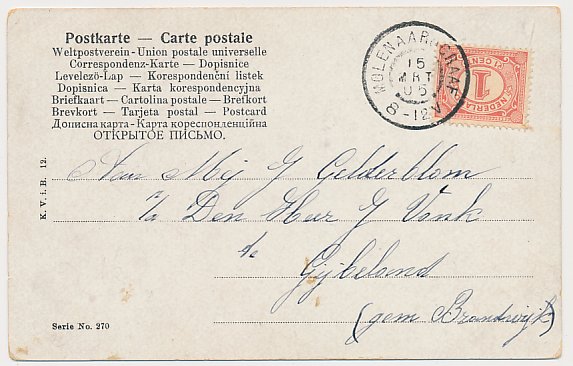 Postkarte — Carte postale
Weltpostverein - Union postale universelle
Correspondenz-Karte — Dopisnice
Levelező-Lap — Korespondenční listek
Dopisnica — Karta korespondencyjna
Briefkaart - Cartolina postale - Brefkort
Brevkort — Tarjeta postal — Postcard
Дописна карта - Карта кореспонденційна
ОТКРЫТОЕ ПИСЬМО.
MOLENAARSGRAAF
15
MRT
05
8-12V
1 CENT
1
NEDERLAND
K. V. i. B. 12.
Aan Mej G Gelderblom
p/a Den Heer G Vonk
te
Gijbeland
(gem Brandwijk)
Serie No. 270